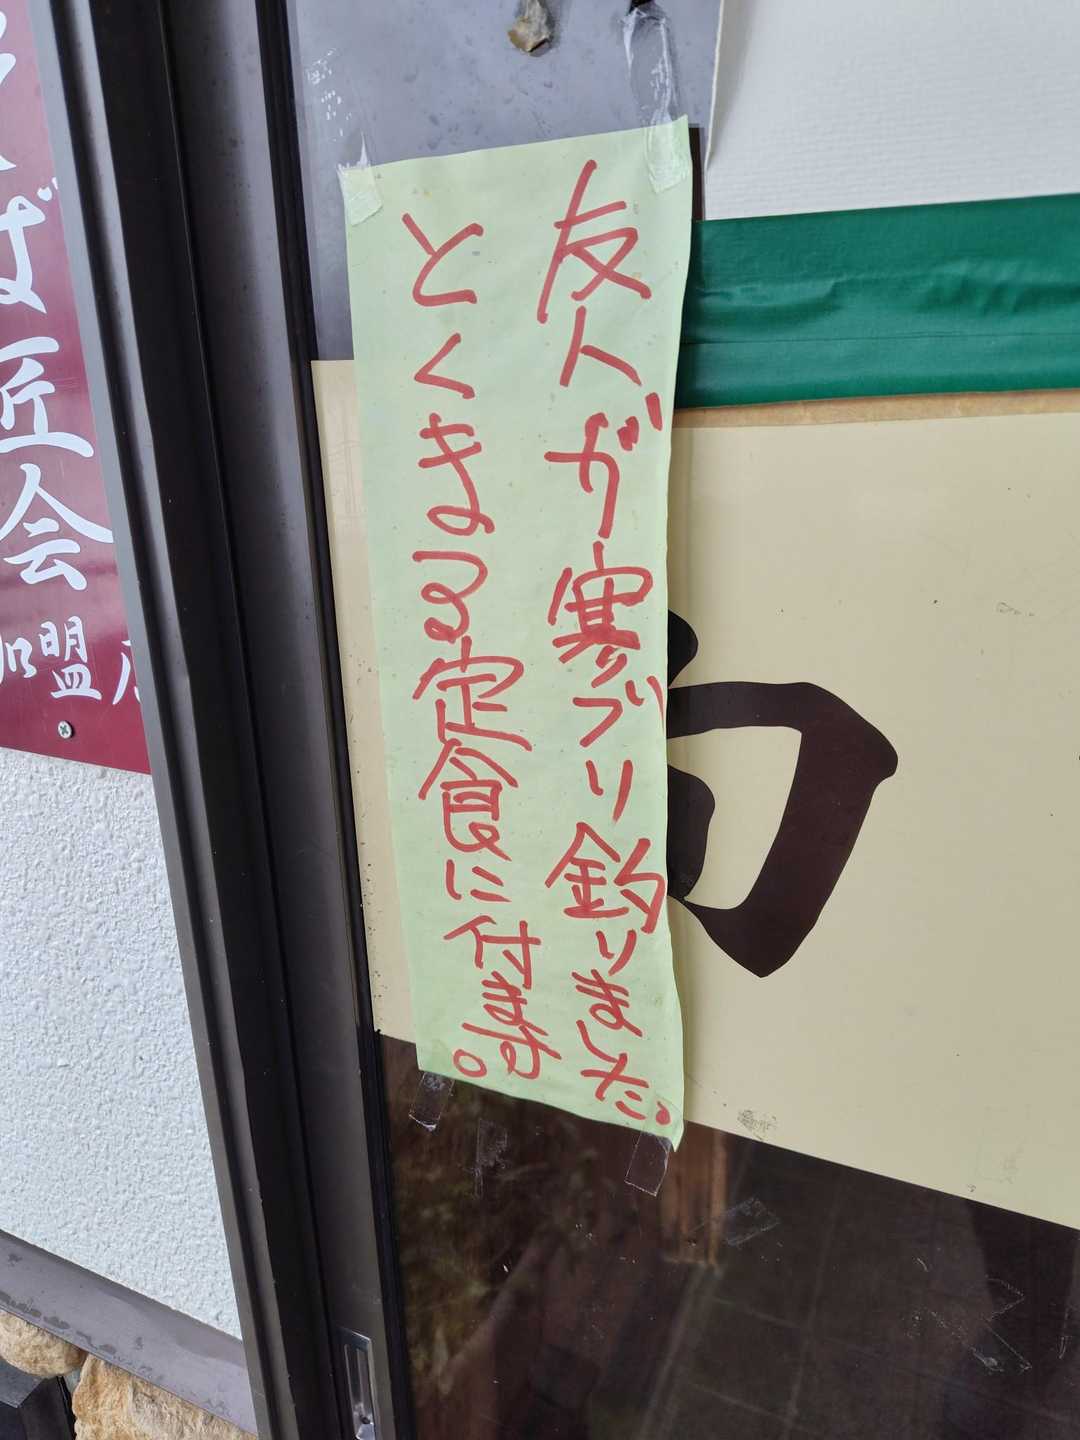 友人が寒ブリ釣りました。
とくまる定食に付ます。
そば匠会
加盟店